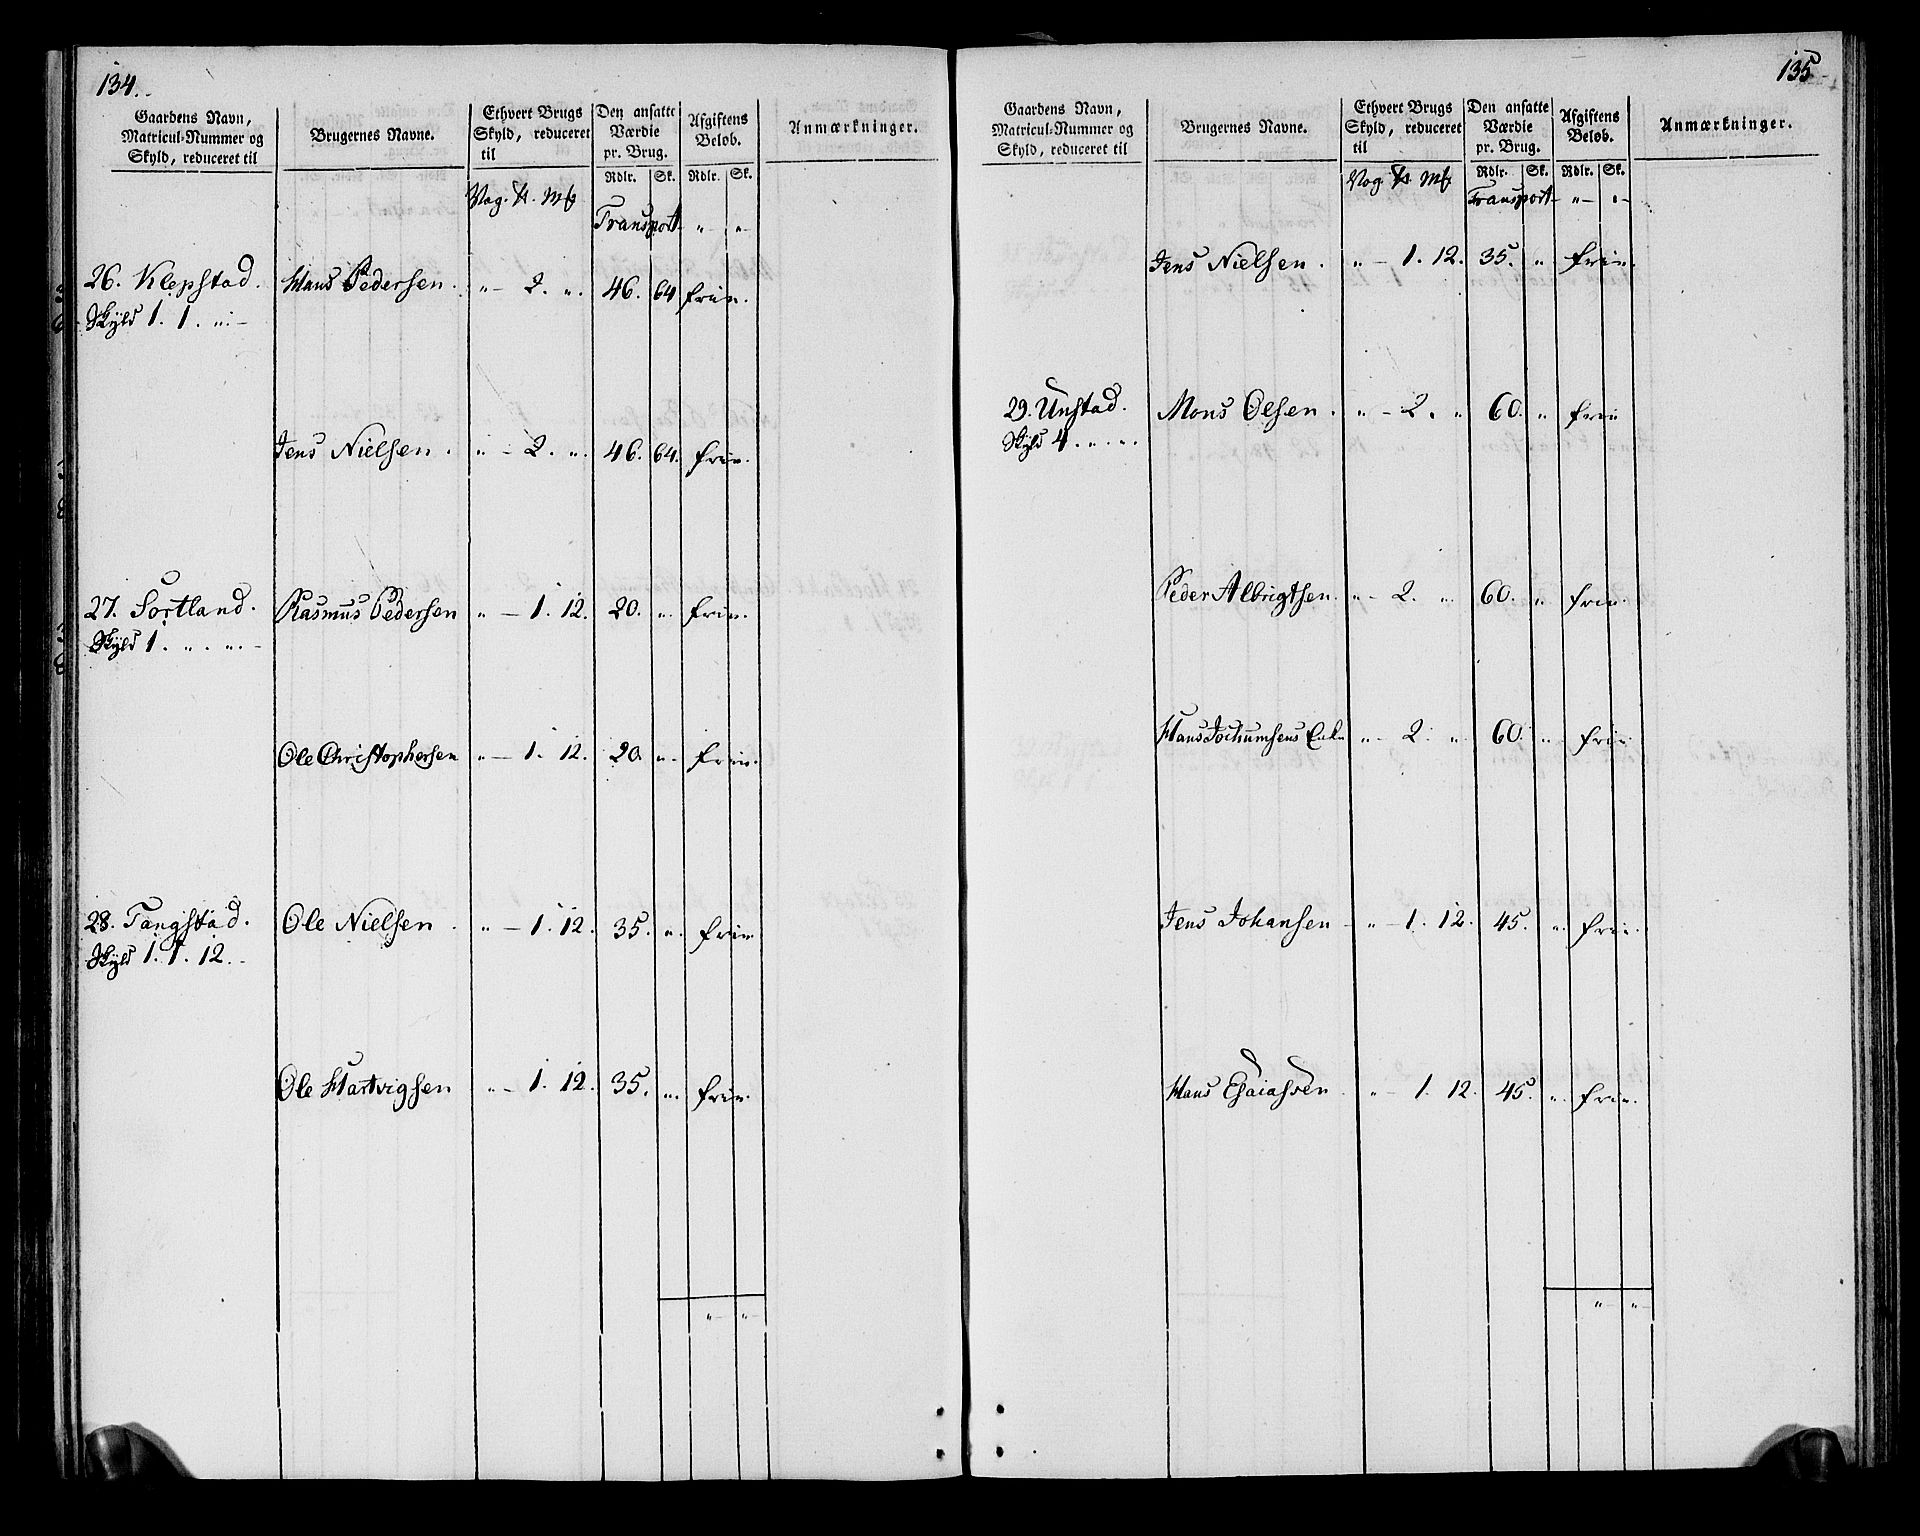 134.
Gaardens Navn, Matricul-Nummer og Skyld, reduceret til
Brugernes Navne.
Ethvert Brugs Skyld, reduceret til
Den ansatte Værdie pr. Brug.
Afgiftens Belob.
Anmærkninger.
Rdlr. Sk. Rdlr. Sk.
Vog. ℔. Mk
Transport „ „
26. Klepstad. Hans Pedersen. „ – 2. „. 46. 64 frie.
Skyld 1. 1. „. –
Jens Nielsen. „ – 2. „. 46. 64. frie.
27. Sortland. Rasmus Pedersen „ – 1. 12. 20. „. frie.
Skyld 1. „. „. –
Ole Christophersen „ – 1. 12. 20. „. frie.
28. Tangstad. Ole Nielsen. „ – 1. 12. 35. „. frie
Skyld 1. 1. 12. –
Ole Hartvigsen „ – 1. 12. 35. „. frie.
„ – „ –
135
Gaardens Navn, Matricul-Nummer og Skyld, reduceret til
Brugernes Navne.
Ethvert Brugs Skyld, reduceret til
Den ansatte Værdie pr. Brug.
Afgiftens Belob.
Anmærkninger.
Rdlr. Sk. Rdlr. Sk.
Vog. ℔. Mk
Transport – „ – „ –
Jens Nielsen. „ – 1. 12. 35. „ frie.
29. Unstad. Mons Olsen. „ – 2. „ 60. „ frie
Skyld 4. „. „.
Peder Albrigtsen. „ – 2. „. 60. „. frie.
Hans Jochumsens Enke „ – 2. „ 60. „. frie
Jens Johansen – „ – 1. 12. 45. „. frie.
Hans Esaiassen. „ – 1. 12. 45. „. frie.
„ – „ –